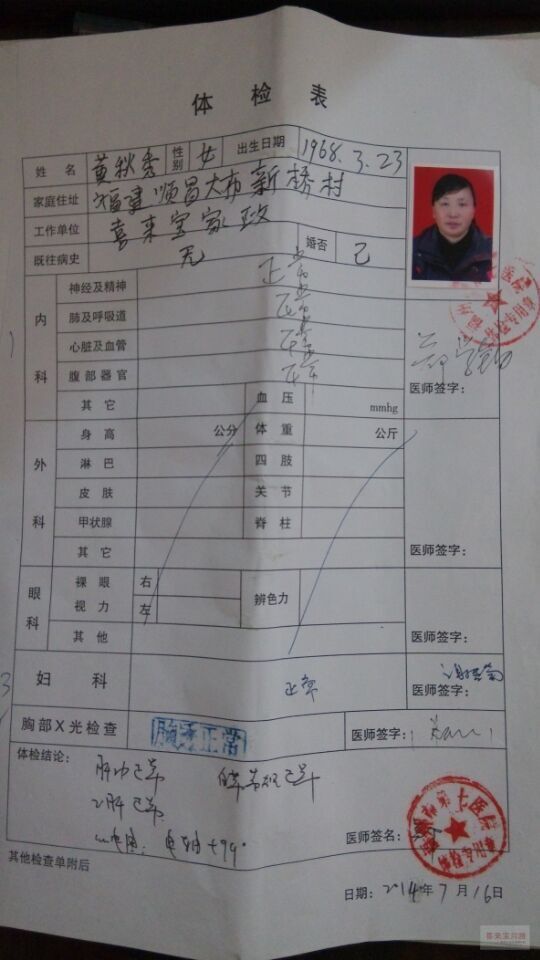 体检表
姓名 黄秋秀 性别 女 出生日期 1968.3.23
家庭住址 福建顺昌大布新桥村
工作单位 喜来宝家政
既往病史 无 婚否 已
内科
神经及精神 正常
肺及呼吸道 正常
心脏及血管 正常
腹部器官 正常
医师签字：
其它 血压 mmhg
外科
身高 公分 体重 公斤
淋巴 四肢
皮肤 关节
甲状腺 脊柱
其它 医师签字：
眼科
裸眼视力 右 左 辨色力
其他 医师签字：
妇科 正常 医师签字：
胸部X光检查 胸透正常 医师签字：
体检结论：
肝功正常
2肝正常
心电图：电轴+99°
医师签名：
市第七医院
其他检查单附后
日期：2014年7月16日